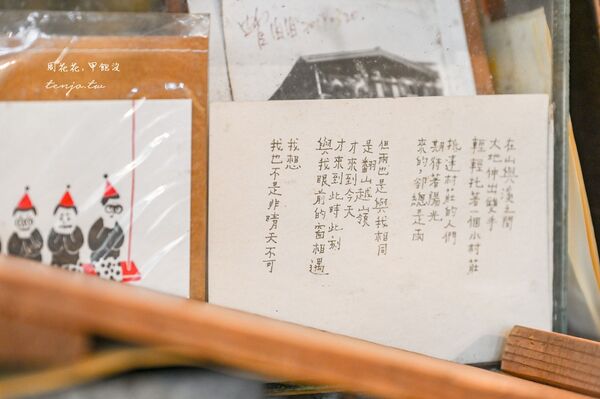 周花花，甲飽沒
tenjo.tw
在山與溪之間
大地伸出雙手
輕輕托著一個小村莊
挑運村莊的人們
期待著陽光
來的，卻總是雨
但雨也是與我相同
是翻山越嶺
才來到今天
才來到此時此刻
與我眼前的窗相遇
我想
我也不是非晴天不可